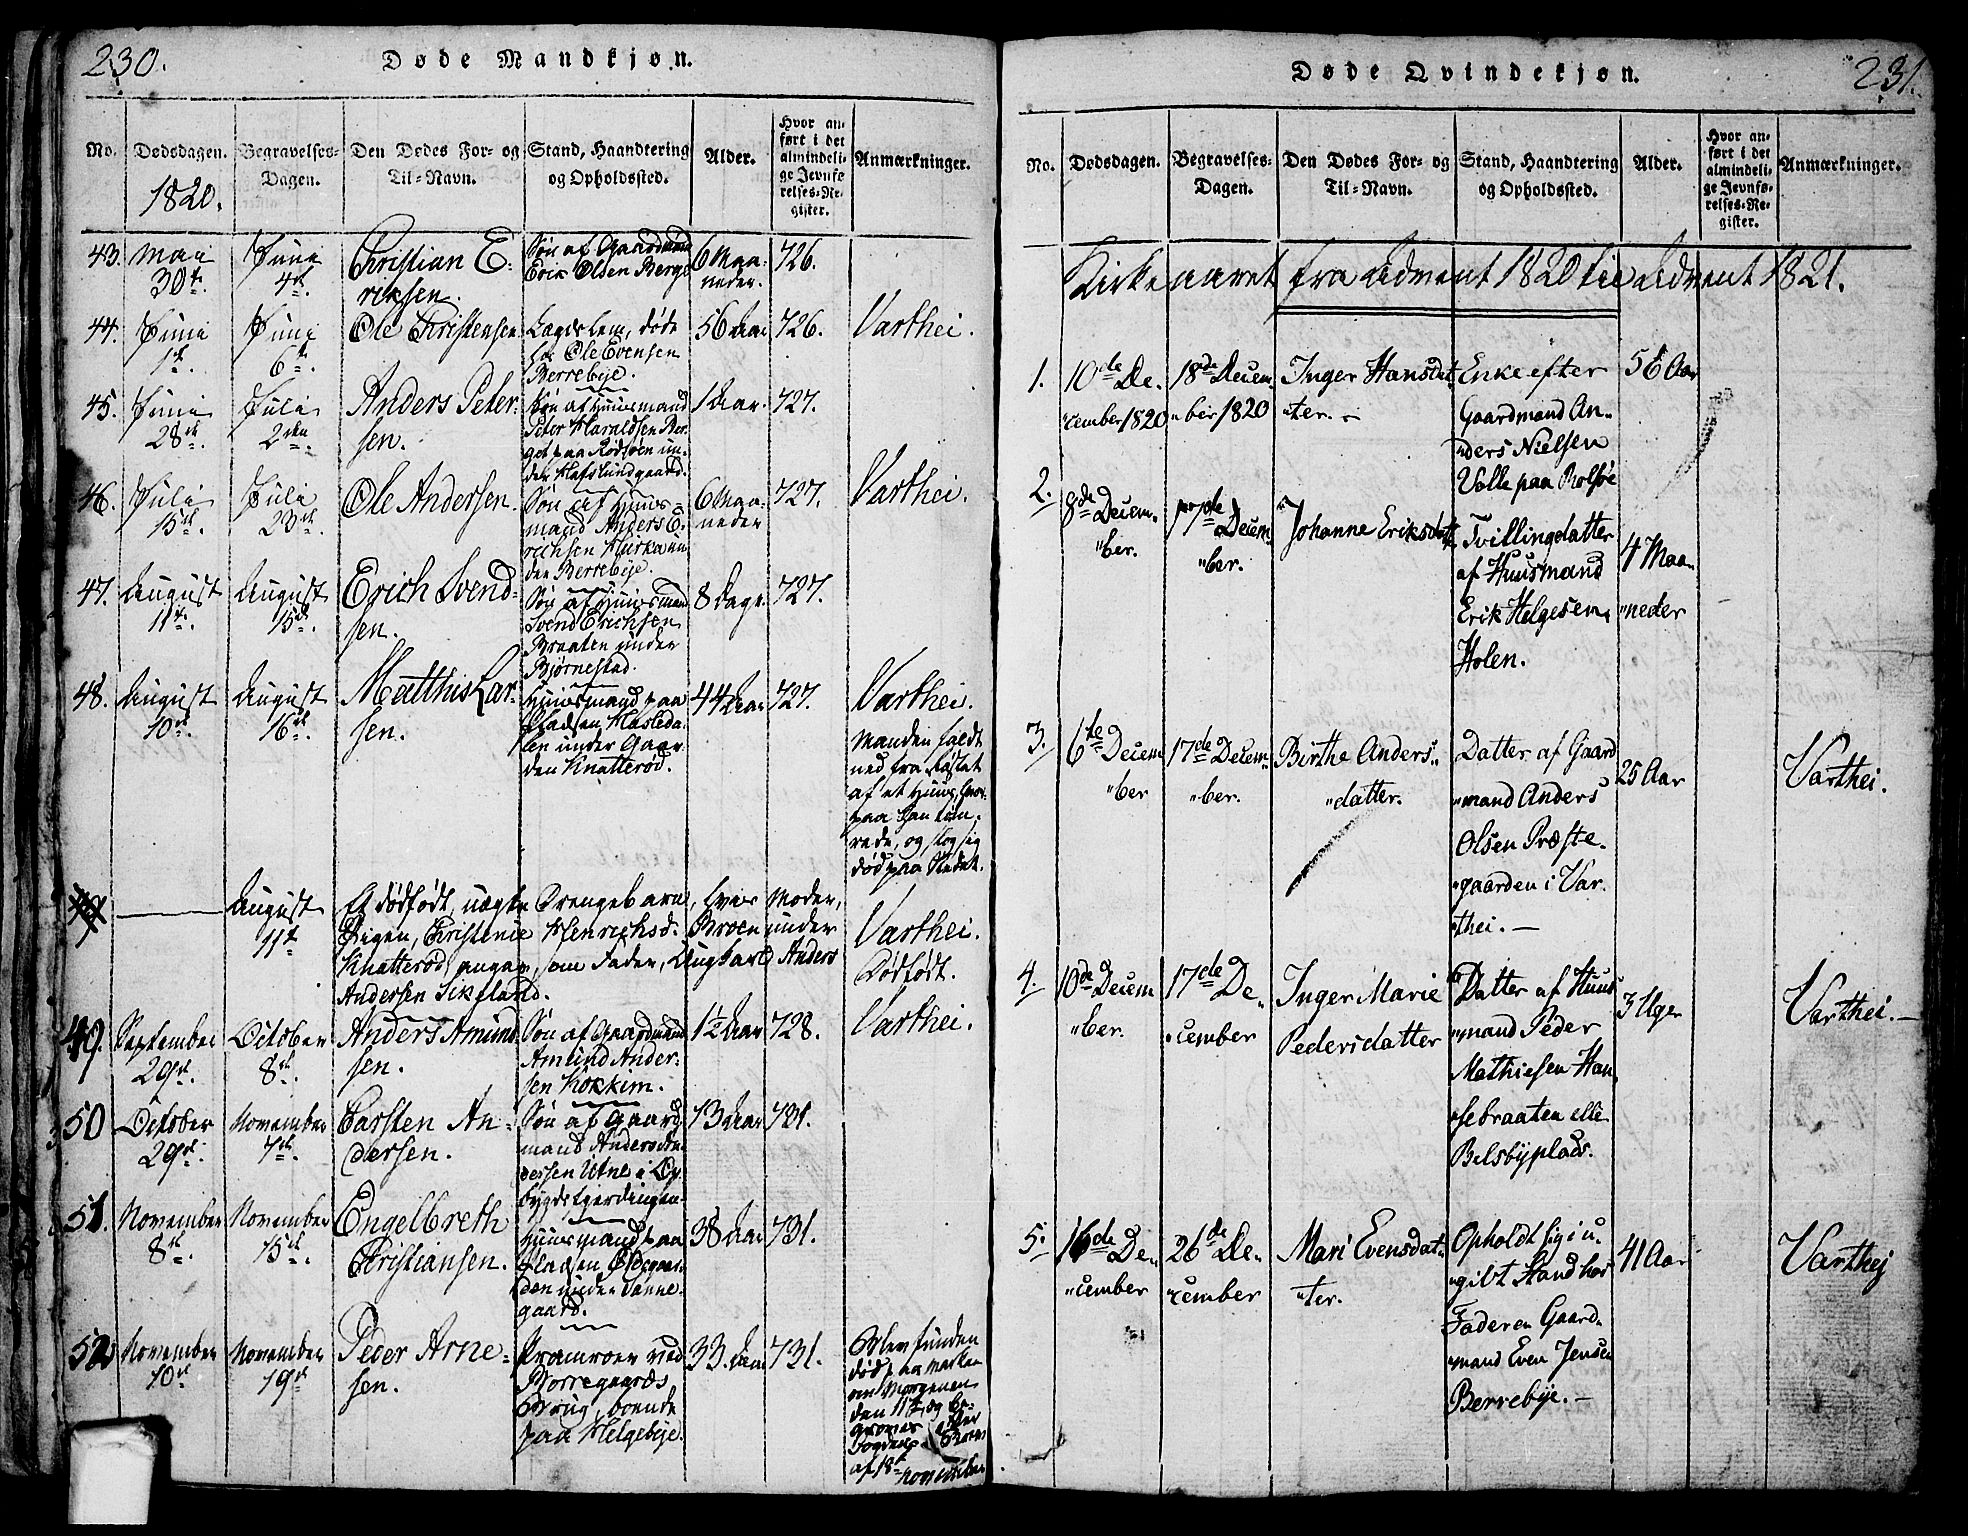 230.
Døde Mandkjøn.
No.
Dødsdagen.
1820.
Begravelses-
Dagen.
Den Dødes For- og
Til-Navn.
Stand, Haandtering
og Opholdssted.
Alder.
Hvor an-
ført i det
almindeli-
ge Jevnfø-
relses-Re-
gister.
Anmærkninger.
43.
Mai
30te.
Juni
4de.
Christian E-
riksen.
Søn af Gaardmand
Erik Olsen Berge
6 Maa-
neder.
726.
44.
Juni
1te.
Juni
6te.
Ole Christensen
Lægdslem, døde
hos Ole Evensen
Berrebye.
56 Aar
726.
Varthei.
45.
Juni
28de.
Juli
2den.
Anders Peter-
sen.
Søn af Huusmand
Peter Haraldsen Ber-
get paa Rødsøen un-
der Hafslundgaard.
1 Aar.
727.
46.
Juli
15de.
Juli
23de.
Ole Andersen.
Søn af Huus-
mand Anders E-
richsen Kirke un-
der Berrebye.
6 Maa-
neder
727.
Varthei.
47.
August
11te.
August
15de.
Erich Svend-
sen.
Søn af Huusmand
Svend Erichsen
Braaten under
Bjørnestad.
8 Dage.
727.
48.
August
10de.
August
16de.
Matthis Lar-
sen.
Huusmand paa
Pladsen Hasleda-
len under Gaar-
den Knatterød.
44 Aar
727.
Varthei.
Manden faldt
ned fra Røstet
af et Huus, hvor-
paa han tøm-
rede, og slog sig
død paa Stedet.
August
11te
Et dødfødt, uægte Drengebarn, hvis Moder,
Pigen, Christenie Henrichsd. Broen under
Knatterød, angav, som Fader, Ungkarl Anders
Andersen Sikeland.
Varthei.
Dødfødt.
49.
September
29de.
October
8de.
Anders Amund-
sen.
Søn af Gaardmand
Amund Ander-
sen Kokkim.
1½ Aar
728.
Varthei.
50
October
29de.
November
7de.
Carsten An-
dersen.
Søn af Gaard-
mand Anders An-
dersen Utne i Op-
bygdsfjerdingen.
13 Aar
731.
51.
November
8de.
November
15de.
Engelbreth
Christiansen.
Huusmand paa
Pladsen Ødegaar-
den under Sanne-
gaard.
38 Aar
731.
52
November
10de
November
19de
Peder Arne-
sen.
Pramroer ved
Borregaards
Brug, boende
paa Helgebye.
33. Aar
731.
Blev funden
død paa Marken
om Morgenen
den 11te og be-
graves
af 18de
November
231.
Døde Qvindekjøn.
No.
Dødsdagen.
Begravelses-
Dagen.
Den Dødes For- og
Til-Navn.
Stand, Haandtering
og Opholdssted.
Alder.
Hvor an-
ført i det
almindeli-
ge Jevnfø-
relses-Re-
gister.
Anmærkninger.
Kirkeaaret fra Advent 1820 til Advent 1821.
1.
10de De-
"cember 1820
18de Decem-
"ber 1820
Inger Hansdat-
"ter. -
Enke efter
Gaardmand An-
"ders Nielsen
Valle paa Rolfsøe
56 Aar
2.
8de Decem-
"ber.
17de Decem-
"ber.
Johanne Eriksdatt.
Tvillingdatter
af Huusmand
Erik Helgesen,
Holen.
4 Maa-
"neder
3.
6te Decem
"ber
17de Decem-
"ber.
Birthe Anders-
"datter.
Datter af Gaard
"mand Anders
Olsen Præste-
"gaarden i Var-
"thei. —
25 Aar
Varthei.
4.
10de Decem
"ber.
17de De-
"cember
Inger Marie
Pedersdatter
Datter af Huus
"mand Peder
Mathiesen Han-
"sebraaten elle
Belsbyplads.
3 Uger
Varthei. —
5.
16de De-
"cember
26de De-
"cember
Mari Evensdat-
"ter.
Opholdt sig i u-
"givt Stand hos
Faderen Gaard-
"mand Even Jensen
Berrebye. —
41 Aar
Varthej